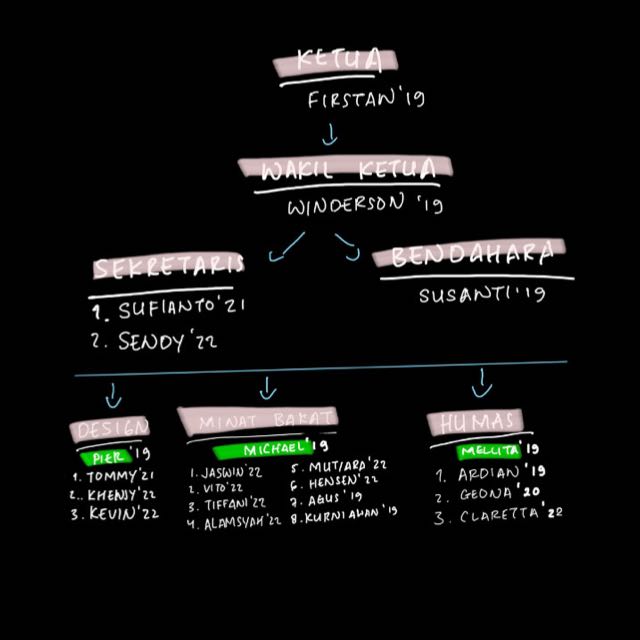 KETUA
FIRSTAN'19
WAKIL KETUA
WINDERSON '19
SEKRETARIS
1. SUFIANTO'21
2. SENDY'22
BENDAHARA
SUSANTI'19
DESIGN
PIER '19
1. TOMMY'21
2. KHENIY'22
3. KEVIN'22
MINAT BAKAT
MICHAEL'19
1. JASWIN'22
2. VITO'22
3. TIFFANI'22
4. ALAMSYAH'22
5. MUTIARA'22
6. HENSEN'22
7. AGUS '19
8. KURNIAWAN '19
HUMAS
MELLITA'19
1. ARDIAN '19
2. GEONA '20
3. CLARETTA '22